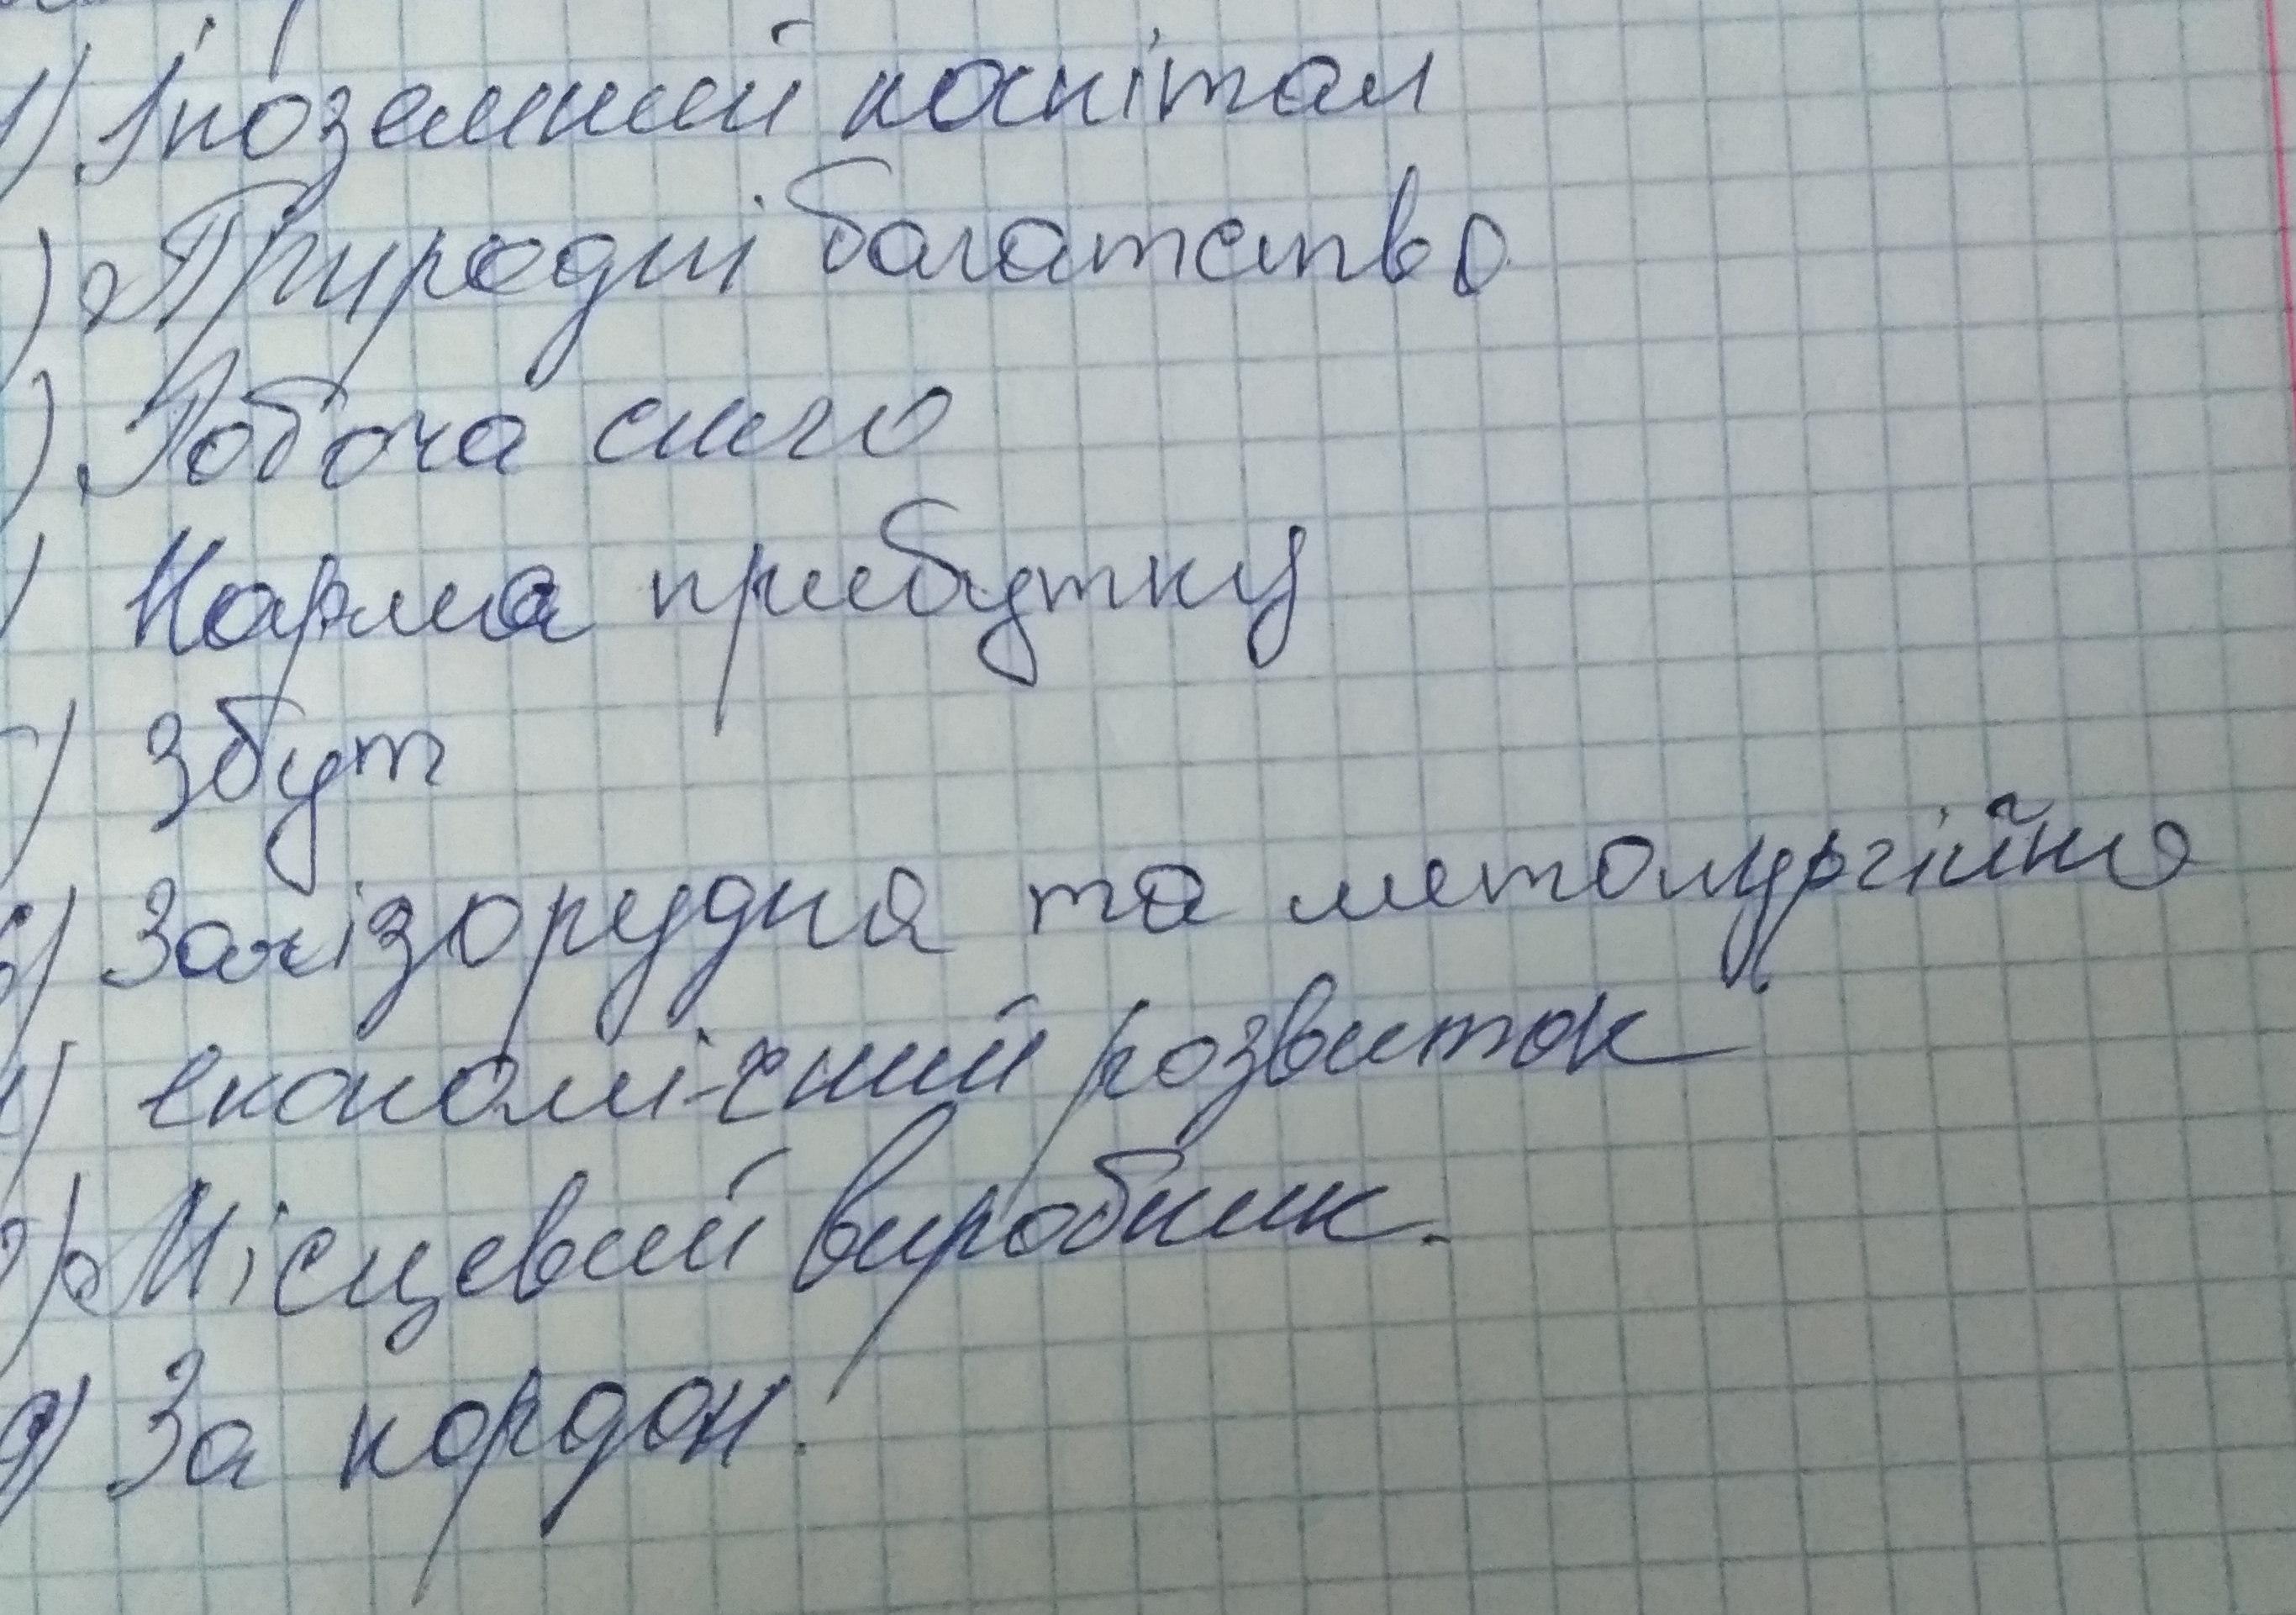 1) Іноземний капітал
) Природні багатства
) Робоча сила
) Норма прибутку
) Збут
6) Залізорудня та металургійна
) економічний розвиток
) Місцевий виробник.
9) За кордон.